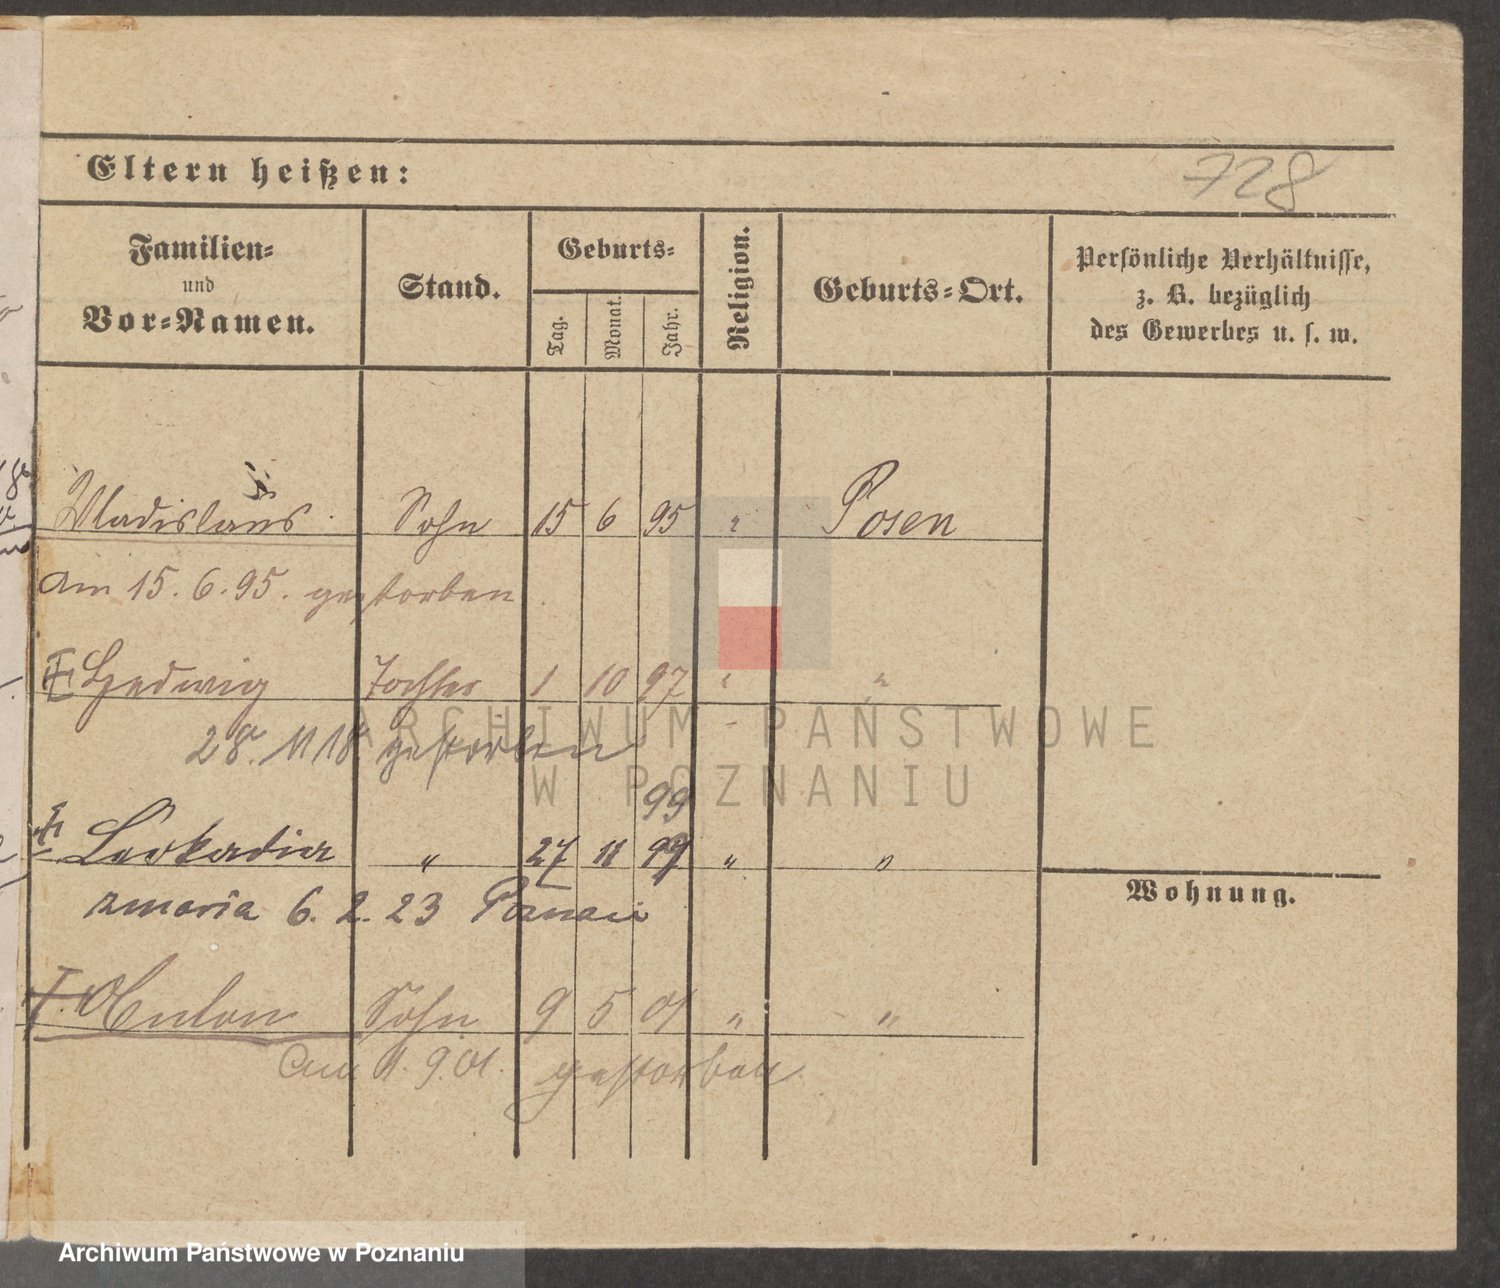 Eltern heißen:
728
Familien-
und
Vor-Namen.
Stand.
Geburts-
Tag.
Monat.
Jahr.
Religion.
Geburts-Ort.
Persönliche Verhältnisse,
z. B. bezüglich
des Gewerbes u. s. w.
Wladislaus Sohn 15 6 95 " Posen
am 15. 6. 95. gestorben
Hedwig Tochter 1 10 97 " "
28. 11 18 gestorben
99
Leokadia " 27 11 99 " "
zmarła 6. 2. 23
Wohnung.
Anton Sohn 9 5 01 " "
am 11. 9. 01. gestorben
ARCHIWUM PAŃSTWOWE
W POZNANIU
Archiwum Państwowe w Poznaniu